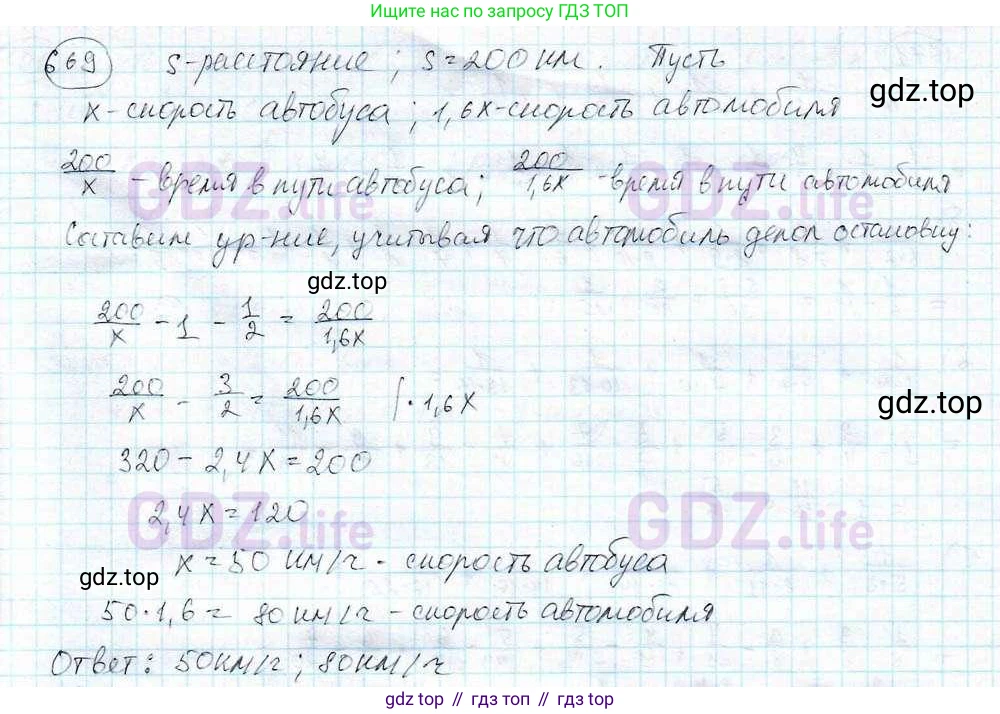 Ищите нас по запросу ГДЗ ТОП
669 S-расстояние; S=200км. Пусть
gdz.top
x-скорость автобуса; 1,6x-скорость автомобиля
200/x - время в пути автобуса; 200/1,6x - время в пути автомобиля
GDZ.life GDZ.life
Составим ур-ние, учитывая что автомобиль делал остановку:
gdz.top
200/x - 1 - 1/2 = 200/1,6x
200/x - 3/2 = 200/1,6x | · 1,6x
gdz.top
320 - 2,4x = 200
2,4x = 120
GDZ.life GDZ.life
x = 50 км/ч - скорость автобуса
gdz.top
50·1,6 = 80 км/ч - скорость автомобиля
Ответ: 50км/ч; 80км/ч
gdz top // гдз топ // gdz.top